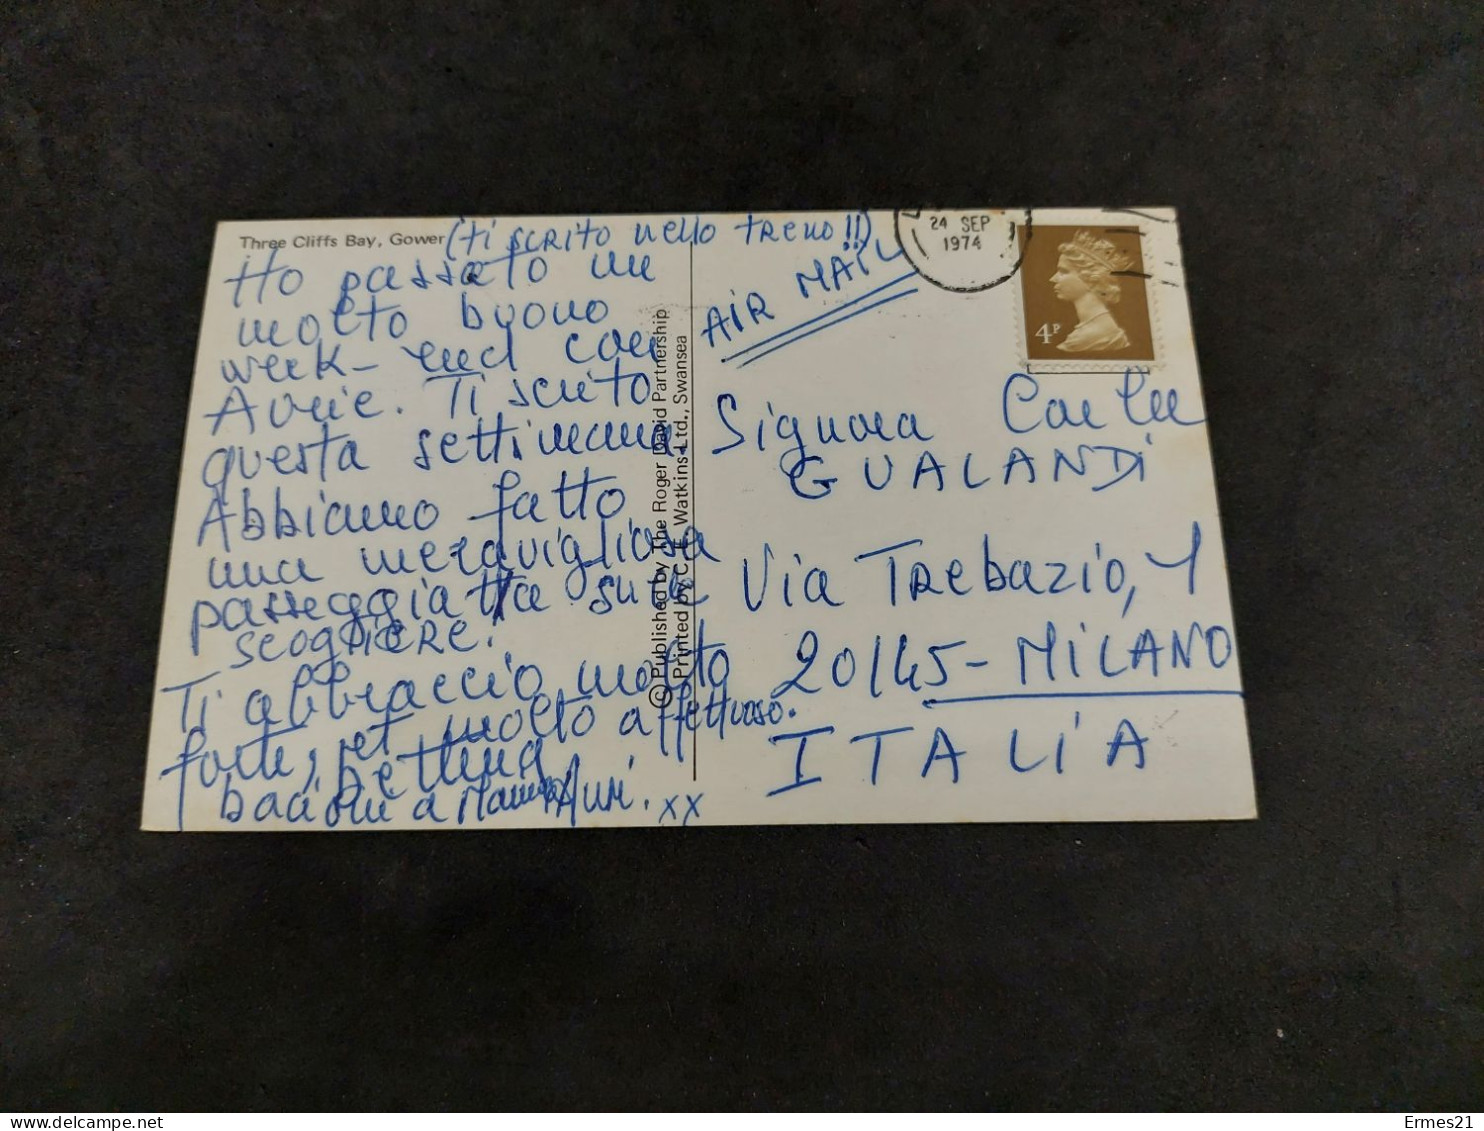 Three Cliffs Bay, Gower
(ti scrito nello treno!!)
Ho passato un
molto buono
week-end con
Ti scrito
questa settimana.
Abbiamo fatto
una meravigliosa
passeggiatta sule
scogliere.
Ti abbraccio molto
forte, et molto affettuoso.
Bettina
xx
© Published by The Roger David Partnership
Printed by C. E. Watkins Ltd., Swansea
AIR MAIL
24 SEP
1974
4P
Signora
GUALANDI
Via Trebazio, 1
20145 - MILANO
ITALIA
Delcampe.net
Ermes21